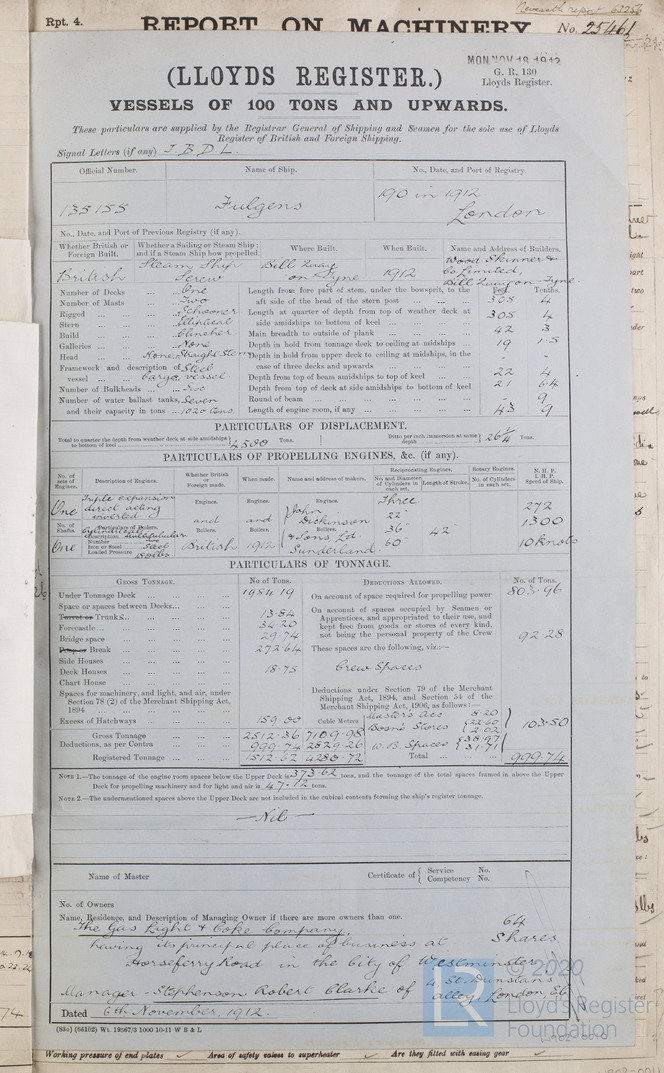 Rpt. 4.
REPORT ON MACHINERY
No. 25461
Newcastle report 62256
MON NOV 18 1912
G. R. 130
Lloyds Register.
(LLOYDS REGISTER.)
VESSELS OF 100 TONS AND UPWARDS.
These particulars are supplied by the Registrar General of Shipping and Seamen for the sole use of Lloyds
Register of British and Foreign Shipping.
Signal Letters (if any) J B D L
Official Number. Name of Ship. No., Date, and Port of Registry.
135155 Fulgens 190 in 1912.
London.
No., Date, and Port of Previous Registry (if any).
Whether British or Foreign Built. Whether a Sailing or Steam Ship; and if a Steam Ship how propelled. Where Built. When Built. Name and Address of Builders.
British Steam Ship Screw Bill Quay on Tyne 1912 Wood Skinner & Co Limited, Bill Quay on Tyne
Feet. Tenths.
Number of Decks ... One Length from fore part of stem, under the bowsprit, to the
Number of Masts ... Two aft side of the head of the stern post ... 305 4
Rigged ... Schooner Length at quarter of depth from top of weather deck at
Stern ... Elliptical side amidships to bottom of keel ... 305 4
Build ... Clincher Main breadth to outside of plank ... 42 3
Galleries ... None Depth in hold from tonnage deck to ceiling at midships ... 19 15
Head ... None, Straight Stem Depth in hold from upper deck to ceiling at midships, in the
Framework and description of Steel case of three decks and upwards ... - -
vessel ... Cargo vessel Depth from top of beam amidships to top of keel ... 22 4
Number of Bulkheads ... Depth from top of deck at side amidships to bottom of keel 21 64
Number of water ballast tanks, Seven Round of beam ... 9
and their capacity in tons ... 1020 tons. Length of engine room, if any ... 43 9
PARTICULARS OF DISPLACEMENT.
Total to quarter the depth from weather deck at side amidships to bottom of keel 4500 Tons. Ditto per inch immersion at same depth 26¼ Tons.
PARTICULARS OF PROPELLING ENGINES, &c. (if any).
No. of sets of Engines. Description of Engines. Whether British or Foreign made. When made. Name and address of makers. Reciprocating Engines. Rotary Engines. N. H. P. I. H. P. Speed of Ship.
No. and Diameter of Cylinders in each set. Length of Stroke. No. of Cylinders in each set.
One Triple expansion direct acting inverted Engines. Engines. Engines. Three
and and John Dickinson 22" 272
No. of Shafts. Particulars of Boilers. Boilers. Boilers. Boilers. 36" 42" 1300
One Description Cylindrical multitubular
Number
Iron or Steel Steel
Loaded Pressure British 1912 & Sons, Ld. Sunderland 60" 10 knots
PARTICULARS OF TONNAGE.
GROSS TONNAGE. No. of Tons. DEDUCTIONS ALLOWED. No. of Tons.
Under Tonnage Deck ... 1984.19 On account of space required for propelling power 803.96
Space or spaces between Decks ... On account of spaces occupied by Seamen or
Turret or Trunks ... 13.84 Apprentices, and appropriated to their use, and
Forecastle ... 34.20 kept free from goods or stores of every kind,
Bridge space ... 29.74 not being the personal property of the Crew 92.28
Poop or Break ... 272.64 These spaces are the following, viz.:—
Side Houses ...
Deck Houses ... 18.75 Crew Spaces
Chart House ...
Spaces for machinery, and light, and air, under Section 78 (2) of the Merchant Shipping Act, 1894 ...
Deductions under Section 79 of the Merchant Shipping Act, 1894, and Section 54 of the Merchant Shipping Act, 1906, as follows:—
Excess of Hatchways ... 159.00 Cubic Metres Master's acc 8.20
Gross Tonnage ... 2512.36 7109.98 Bosn's Stores 22.60 2.02 103.50
Deductions, as per Contra ... 999.74 2829.26 W.B. Spaces 38.97 31.71
Registered Tonnage ... 1512.62 4280.72 Total ... 999.74
NOTE 1.—The tonnage of the engine room spaces below the Upper Deck is 373.62 tons, and the tonnage of the total spaces framed in above the Upper
Deck for propelling machinery and for light and air is 47.12 tons.
NOTE 2.—The undermentioned spaces above the Upper Deck are not included in the cubical contents forming the ship's register tonnage.
—Nil—
Name of Master Certificate of { Service No.
Competency No.
No. of Owners
Name, Residence, and Description of Managing Owner if there are more owners than one.
The Gas Light & Coke Company, 64
having its principal place of business at Shares
Horseferry Road in the City of Westminster
Manager - Stephenson Robert Clarke of 4, St. Dunstans alley, London EC
Dated 6th November, 1912.
(83c) (66102) Wt. 19567/3 1000 10-11 W B & L
© 2020
Lloyd's Register
Foundation
W902-0010
Working pressure of end plates Area of safety valves to superheater Are they fitted with easing gear